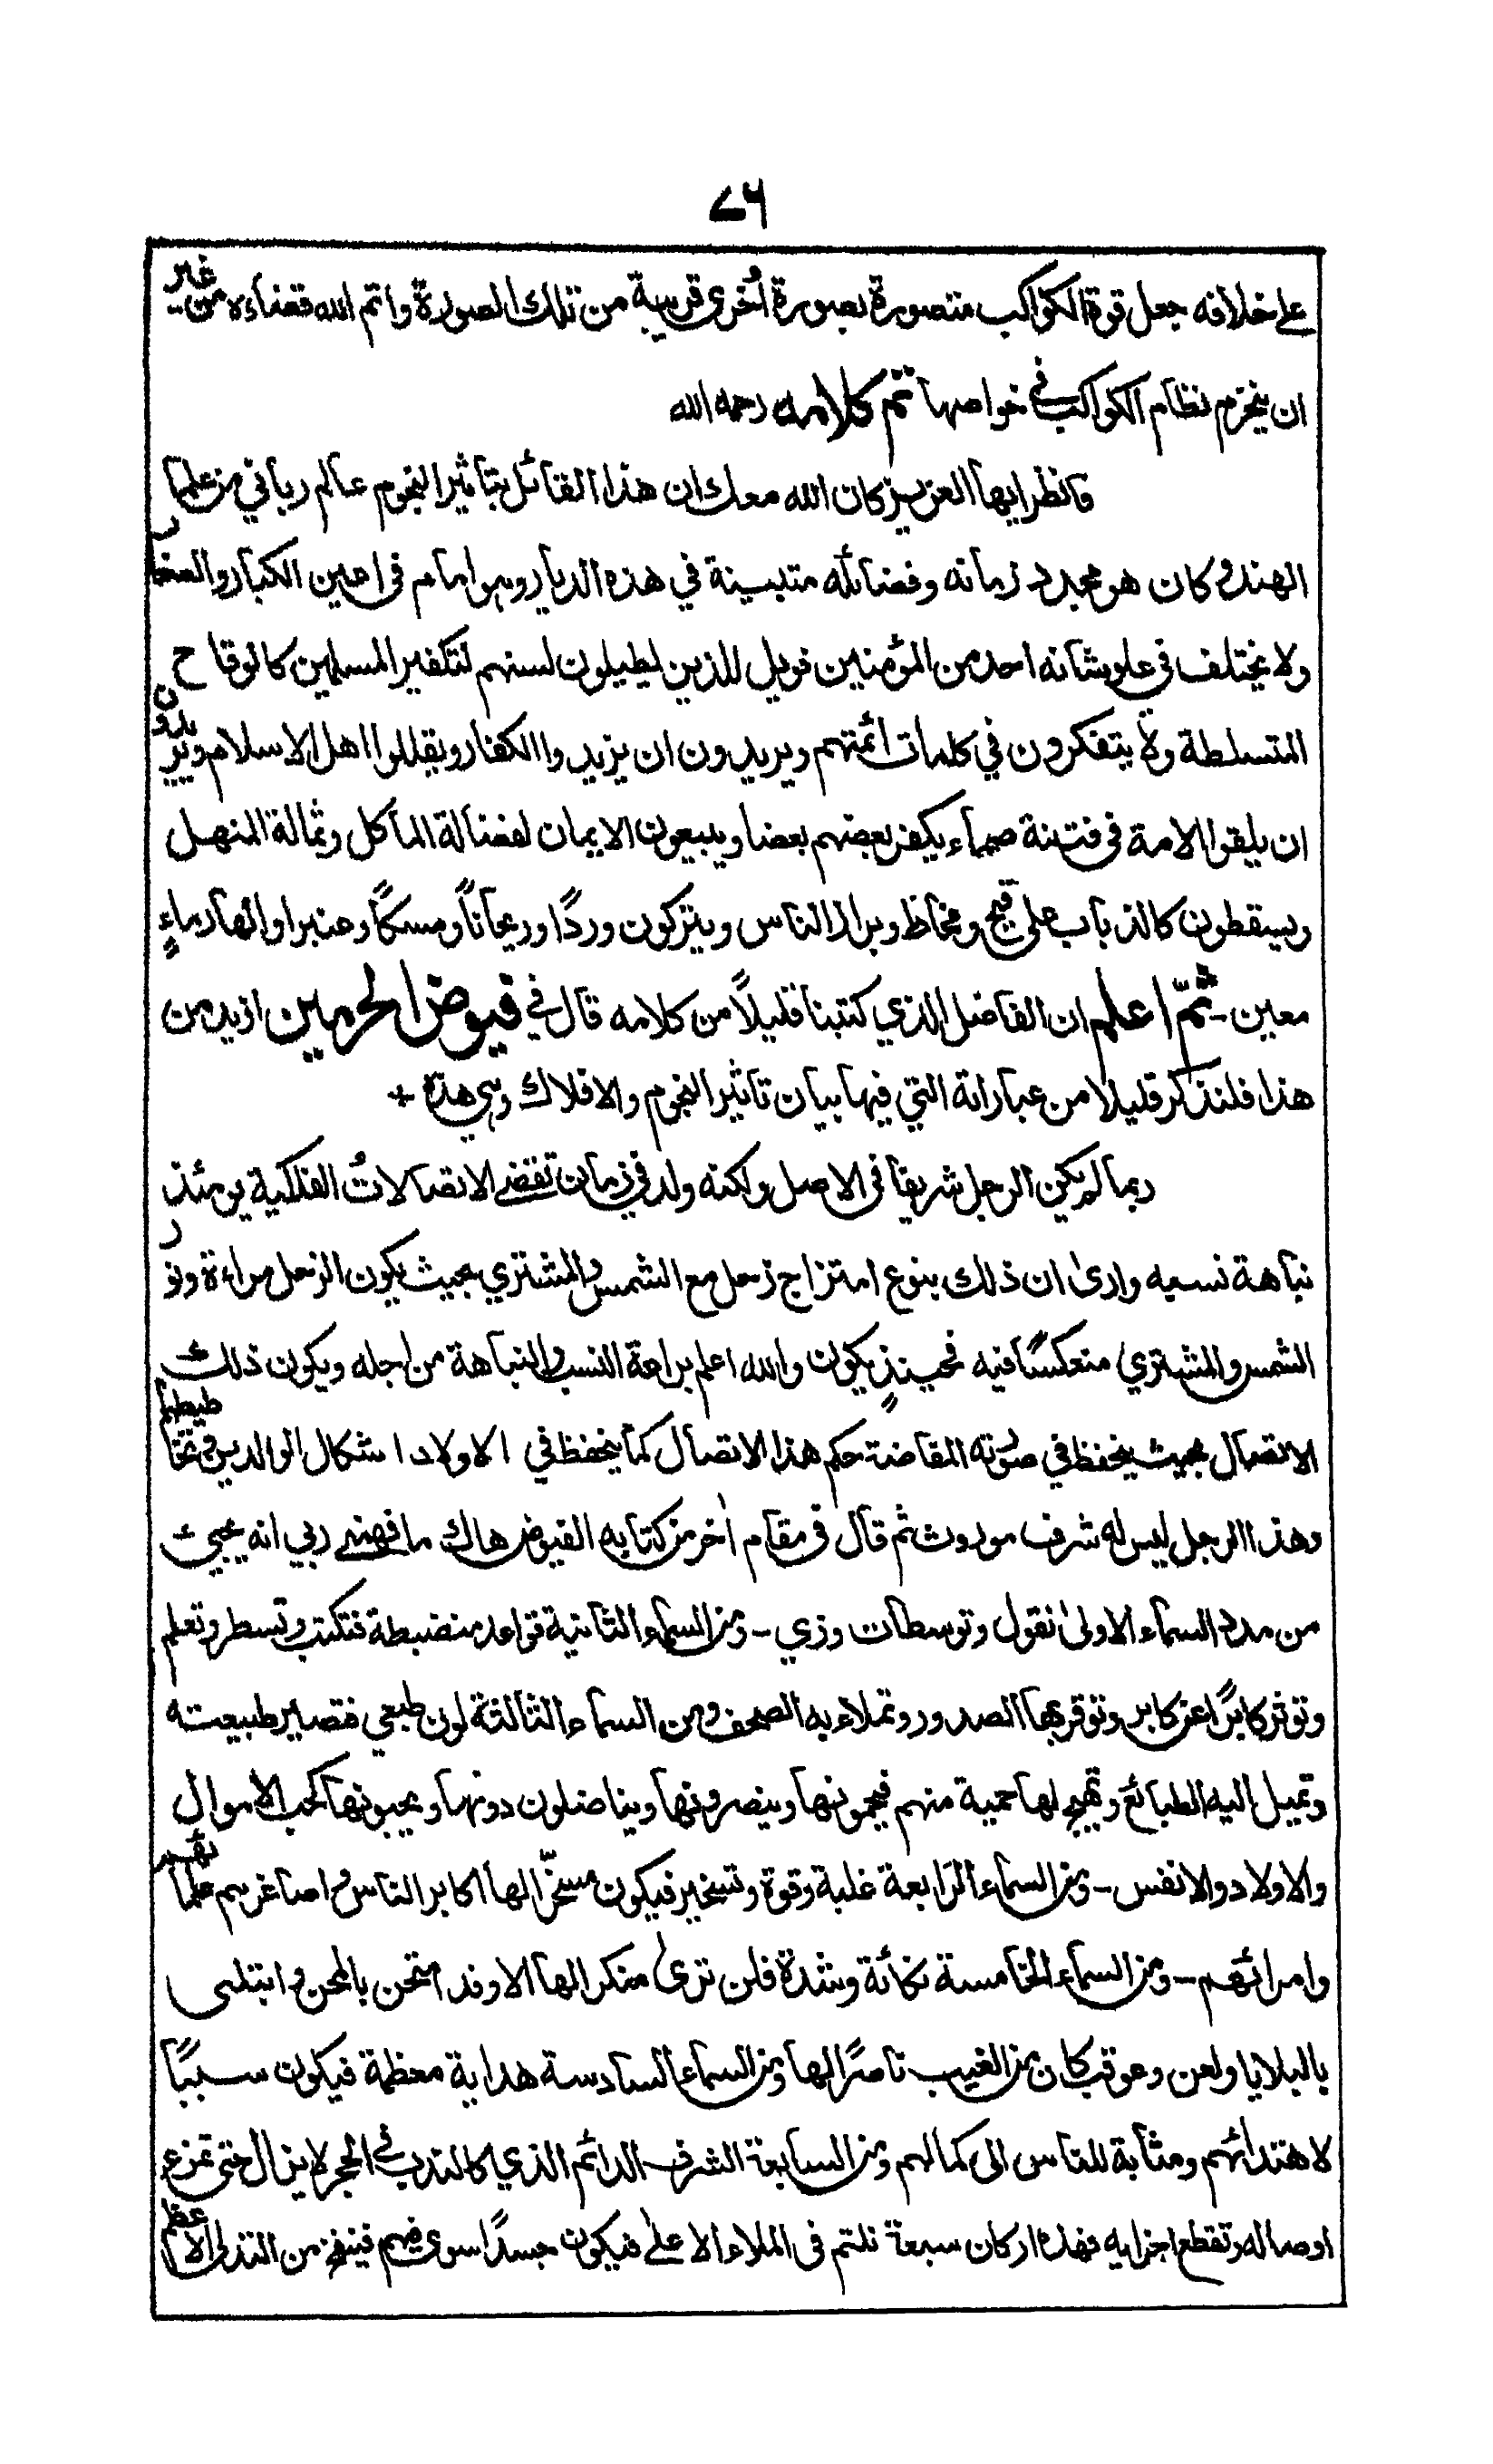 ٧٦
على خلافه جعل قوة الكواكب متصورة بصورة أُخرى قريبة من تلك الصورة واتم الله قضاءه من غير
ان ينخرم نظام الكواكب في خواصها تم كلامه رحمه الله
فانظر ايها العزيز كان الله معك ان هذا القائل بتأثير النجوم عالم رباني من علماء
الهند وكان هو مجدد زمانه وفضائله متبينة في هذه الديار وهو امام في اعين الكبار والصغار
ولا يختلف في علو شانه احد من المؤمنين فويل للذين يطيلون لسنهم لتكفير المسلمين كالوقاح
المتسلطة ولا يتفكرون في كلمات ائمتهم ويريدون ان يزيدوا الكفار ويقللوا اهل الاسلام ويريدون
ان يلقوا الامة في فتنة صماء يكفر بعضهم بعضا ويبيعون الايمان لفضالة المأكل وثمالة المنهل
ويسقطون كالذباب على قيح ومخاط وبراز الناس ويتركون وردًا وريحانًا ومسكًا وعنبرا وانهار ماءٍ
معين - ثمّ اعلم ان الفاضل الذي كتبنا قليلًا من كلامه قال في فيوض الحرمين ازيد من
هذا فلنذكر قليلا من عباراته التي فيها بيان تاثير النجوم والافلاك وهي هذه +
ربما لم يكن الرجل شريفا في الاصل ولكنه ولد في زمان تقضى الاتصالاتُ الفلكية يومئذ
نباهة نسبه وارى ان ذلك بنوع امتزاج زحل مع الشمس والمشتري بحيث يكون الزحل مراءة ونور
الشمس والمشتري منعكسًا فيه فحينئذٍ يكون والله اعلم براعة النسب والنباهة من اجله ويكون ذلك
الاتصال بحيث ينحفظ في صورته المفاضة حكم هذا الاتصال كما ينحفظ في الاولاد اشكال الوالدين وتخاطيطهما
وهذا الرجل ليس له شرف موروث ثم قال في مقام اٰخر من كتابه الفيوض هاك ما فهمني ربي انه يجيئ
من مدد السماء الاولىٰ نقول وتوسطات وزي - ومن السماء الثانية قواعد منضبطة فتكتب وتسطر وتعلم
وتوثر كابرًا عن كابر وتوقر بها الصدور وتملاء به الصحف ومن السماء الثالثة لون طبعي فتصير طبيعته
وتميل اليه الطبائع وتهيج لها حمية منهم فيحمونها وينصرونها ويناضلون دونها ويحبونها كحب الاموال
والاولاد والانفس - ومن السماء الرابعة غلبة وقوة وتسخير فيكون مسخّرا لها اكابر الناس واصاغرهم علمائهم
وامرائهم - ومن السماء الخامسة نكائة وشدة فلن ترىٰ منكرا لها الا وقد امتحن بالمحن وابتلى
بالبلايا ولعن وعوقب كان من الغيب ناصرًا لها ومن السماء السادسة هداية معظمة فيكون سببًا
لاهتدائهم ومثابة للناس الى كمالهم ومن السابعة الشرف الدائم الذي كالندب في الحجر لا يزال حتى تمزع
اوصاله وتقطع اجزايه فهذه اركان سبعة تلتم في الملاء الاعلى فيكون جسدًا سوى فيهم فينفخ من التدلى الاعظم